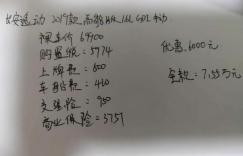 长安逸动 2019款 高能版 1.6L GDI 手动
裸车价 69900
优惠 6000元
购置税: 5774
上牌费: 600
全款: 7.55万元
车船税: 420
交强险: 950
商业保险: 5757